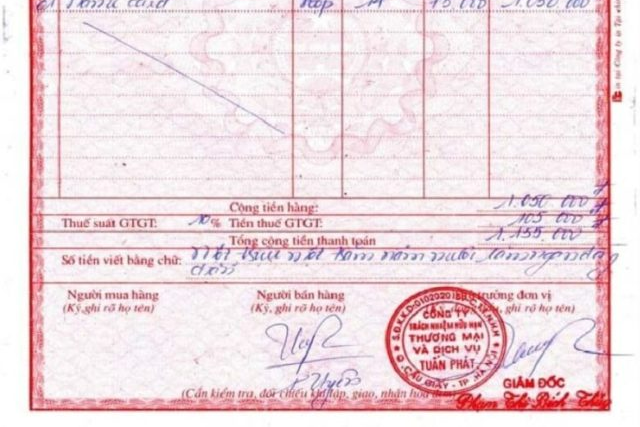 Hộp 14 75.000 1.050.000
Cộng tiền hàng: 1.050.000 đ
Thuế suất GTGT: 10% Tiền thuế GTGT: 105 000 đ
Tổng cộng tiền thanh toán 1.155 000 đ
Số tiền viết bằng chữ: Một triệu một trăm năm mươi lăm ngàn đồng
chẵn
Người mua hàng Người bán hàng trưởng đơn vị
(Ký,ghi rõ họ tên) (Ký, ghi rõ họ tên) ghi rõ họ tên)
CÔNG TY
TRÁCH NHIỆM HỮU HẠN
THƯƠNG MẠI
VÀ DỊCH VỤ
TUẤN PHÁT
CẦU GIẤY - TP. HÀ NỘI
GIÁM ĐỐC
(Cần kiểm tra, đối chiếu khi lập, giao, nhận hoá
Phạm Thị Bích Thủy